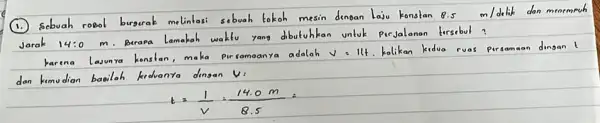 1. Sebuah robot bergerak melintasi sebuah tokoh mesin dengan laju konstan 8.5 m/detik dan menempuh
Jarak 14:0 m. Berapa Lamakah waktu yang dibutuhkan untuk perjalanan tersebut ?
karena Lajunya konstan, maka persamaanya adalah V = l/t. kalikan kedua ruas persamaan dengan t
dan kemudian bagilah keduanya dengan V:
t = l / V = 14.0 m / 8.5 =